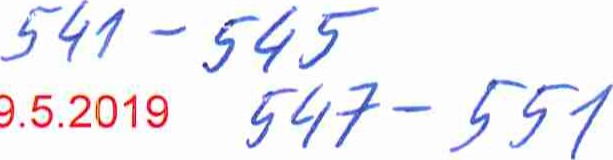 541 - 545
9.5.2019 547 - 551